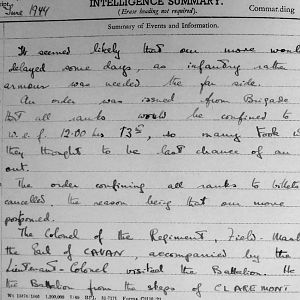 INTELLIGENCE SUMMARY.
(Erase heading not required).
Commanding
June 1944
Summary of Events and Information.
It seemed likely that our move would
delayed some days, as infantry rather
armour was needed the far side.
An order was issued from Brigade
that all ranks would be confined to
w.e.f. 12.00 hrs 13th, so many took
they thought to be last chance of an
out.
The order confining all ranks to billets
cancelled the reason being that our move
postponed.
The Colonel of the Regiment, Field-Marshal
the Earl of CAVAN, accompanied by the
Lieutenant-Colonel visited the Battalion. He
the Battalion from the steps of CLAREMONT